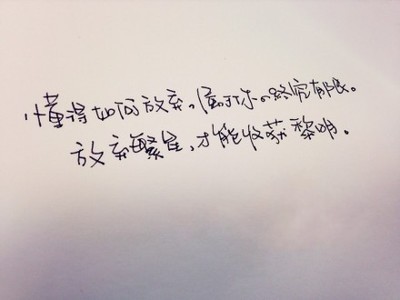 懂得如何放弃，属于你的终究有限。
放弃繁星，才能收获黎明。